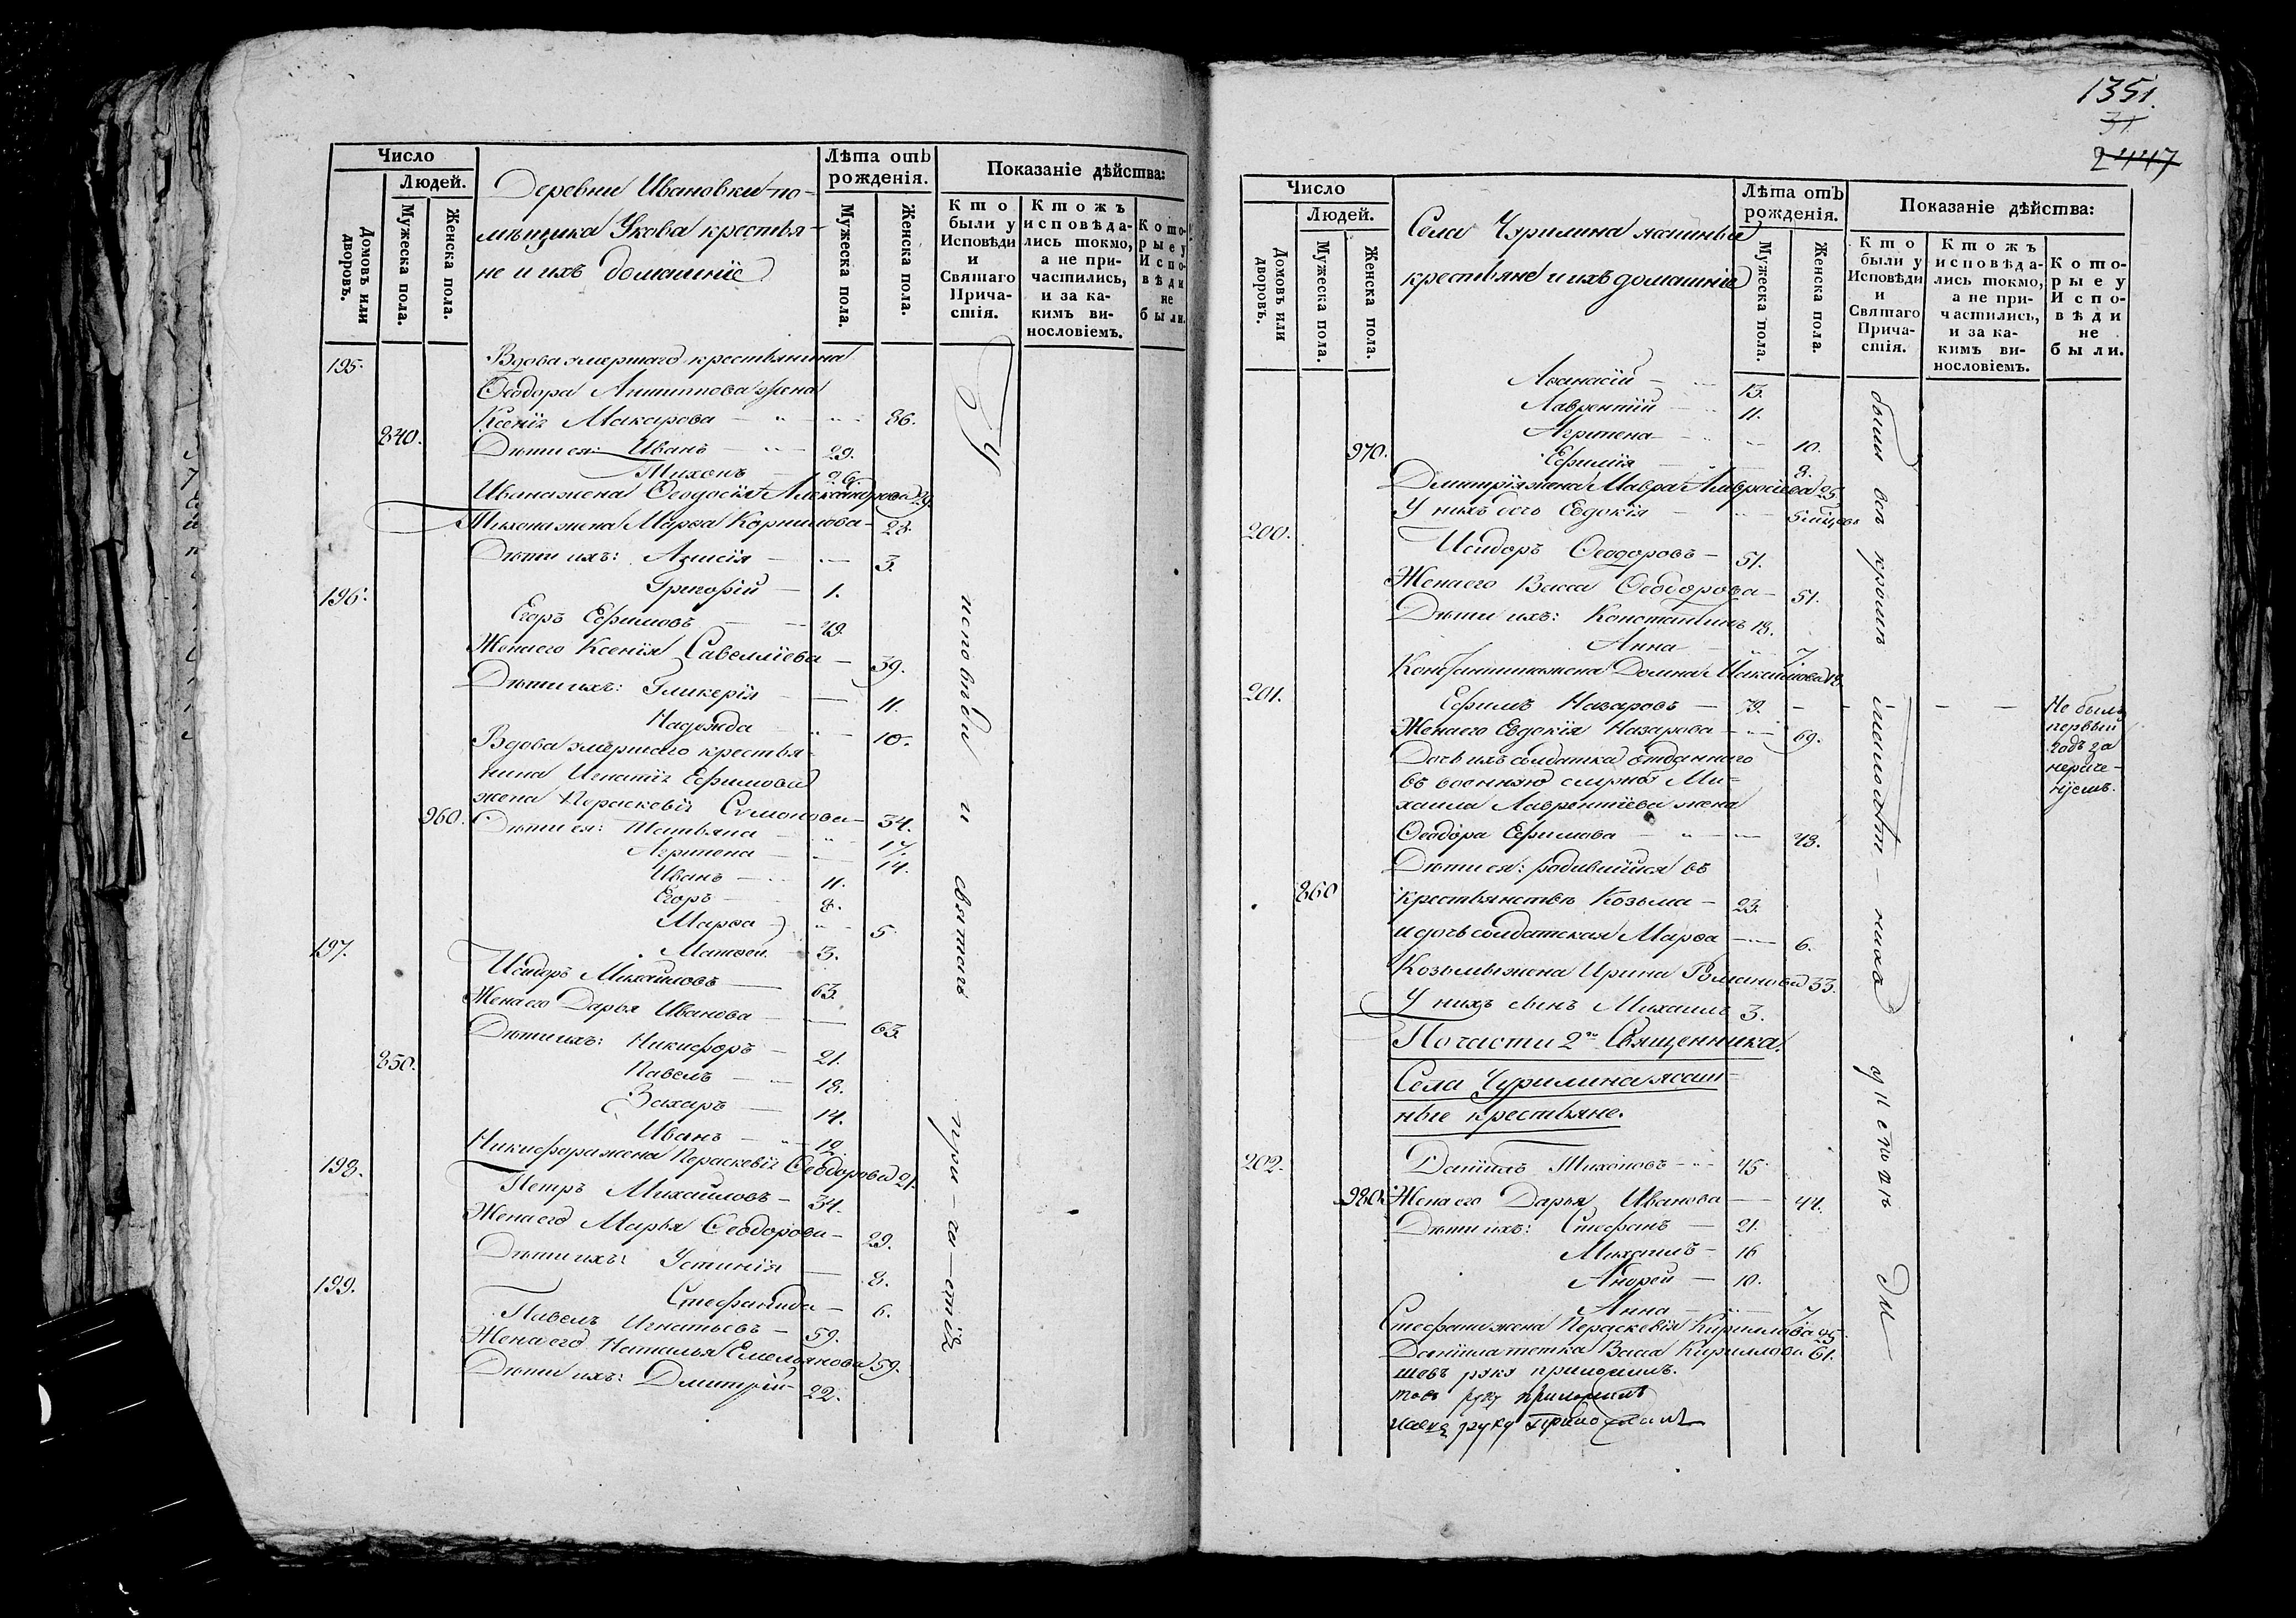 Число
Людей.
Домовъ или дворовъ.
Мужеска пола.
Женска пола.
Деревни Ивановки по-
мѣщика Ускова крестья-
не и ихъ домашніе
Лѣта отъ рожденія.
Мужеска пола.
Женска пола.
Показаніе дѣйства:
Кто были у Исповѣди и Святаго Причастія.
Ктожъ исповѣдались токмо, а не причастились, и за какимъ винословіемъ.
Которые у Исповѣди не были.
195. Вдова умершаго крестьянина
Ѳеодора Антипова жена
Ксенія Макарова — 86.
840. Дѣти ея: Иванъ — 29.
Тихонъ — 26.
Ивана жена Ѳеодосія Александрова 29.
Тихона жена Марѳа Корнилова — 28.
Дѣти ихъ: Анисія — 3.
Григорій — 1.
196. Егоръ Ефимовъ — 49.
Жена его Ксенія Савеллiева — 39.
Дѣти ихъ: Гликерія — 11.
Надежда — 10.
Вдова умершаго крестья-
нина Игнатія Ефимова
жена Параскевія Симонова — 34.
960. Дѣти ея: Татьяна — 17.
Агрипена — 14.
Иванъ — 11.
Егоръ — 8.
Марѳа — 5.
Матѳей — 3.
197. Исидоръ Михайловъ — 63.
Жена его Дарья Иванова — 63.
Дѣти ихъ: Никифоръ — 21.
850. Павелъ — 18.
Захаръ — 14.
Иванъ — 12.
Никифора жена Параскевія Ѳеодорова 21.
198. Петръ Михайловъ — 34.
Жена его Марья Ѳеодорова — 29.
Дѣти ихъ: Устинія — 8.
Стефанида — 6.
199. Павелъ Игнатьевъ — 59.
Жена его Наталья Емельянова 59.
Дѣти ихъ: Дмитрій — 22.
У исповѣди и святаго при-ча-стія
1351.
31
2447
Число
Людей.
Домовъ или дворовъ.
Мужеска пола.
Женска пола.
Села Чурилина ясашные
крестьяне и ихъ домашніе
Лѣта отъ рожденія.
Мужеска пола.
Женска пола.
Показаніе дѣйства:
Кто были у Исповѣди и Святаго Причастія.
Ктожъ исповѣдались токмо, а не причастились, и за какимъ винословіемъ.
Которые у Исповѣди не были.
Аѳанасій — 13.
Лаврентій — 11.
970. Агрипена — 10.
Ефимія — 8.
Дмитрія жена Мавра Амвросіева 25.
У нихъ дочь Евдокія —
200. Исидоръ Ѳеодоровъ — 51.
Жена его Васса Ѳеодорова — 51.
Дѣти ихъ: Константинъ 18.
Анна — 7.
Константина жена Домна
201. Ефимъ Назаровъ — 79. — — — Не былъ
первый
годъ за
нераче-
ніемъ.
Жена его Евдокія Назарова — 69.
Дочь ихъ солдатка отданнаго
въ военную службу Ми-
хаила Лаврентіева жена
Ѳеодора Ефимова — 43.
Дѣти ея: родившійся въ
860 крестьянствѣ Козьма — 23.
и дочь солдатская Марѳа — 6.
Козьмы жена Ирина Романова 33.
У нихъ сынъ Михаилъ 3.
По части 2го Священника.
Села Чурилина ясаш-
ные крестьяне.
202. Даніилъ Тихоновъ — 45.
980. Жена его Дарья Иванова — 44.
Дѣти ихъ: Стефанъ — 21.
Михаилъ — 16
Андрей — 10.
Анна — 7.
Стефана жена Параскевія Кириллова 25.
Даніила тетка Васса Кириллова 61.
шовъ руку приложилъ.
товъ руку приложилъ
руку приложилъ
были всѣ кромѣ малолѣт-нихъ